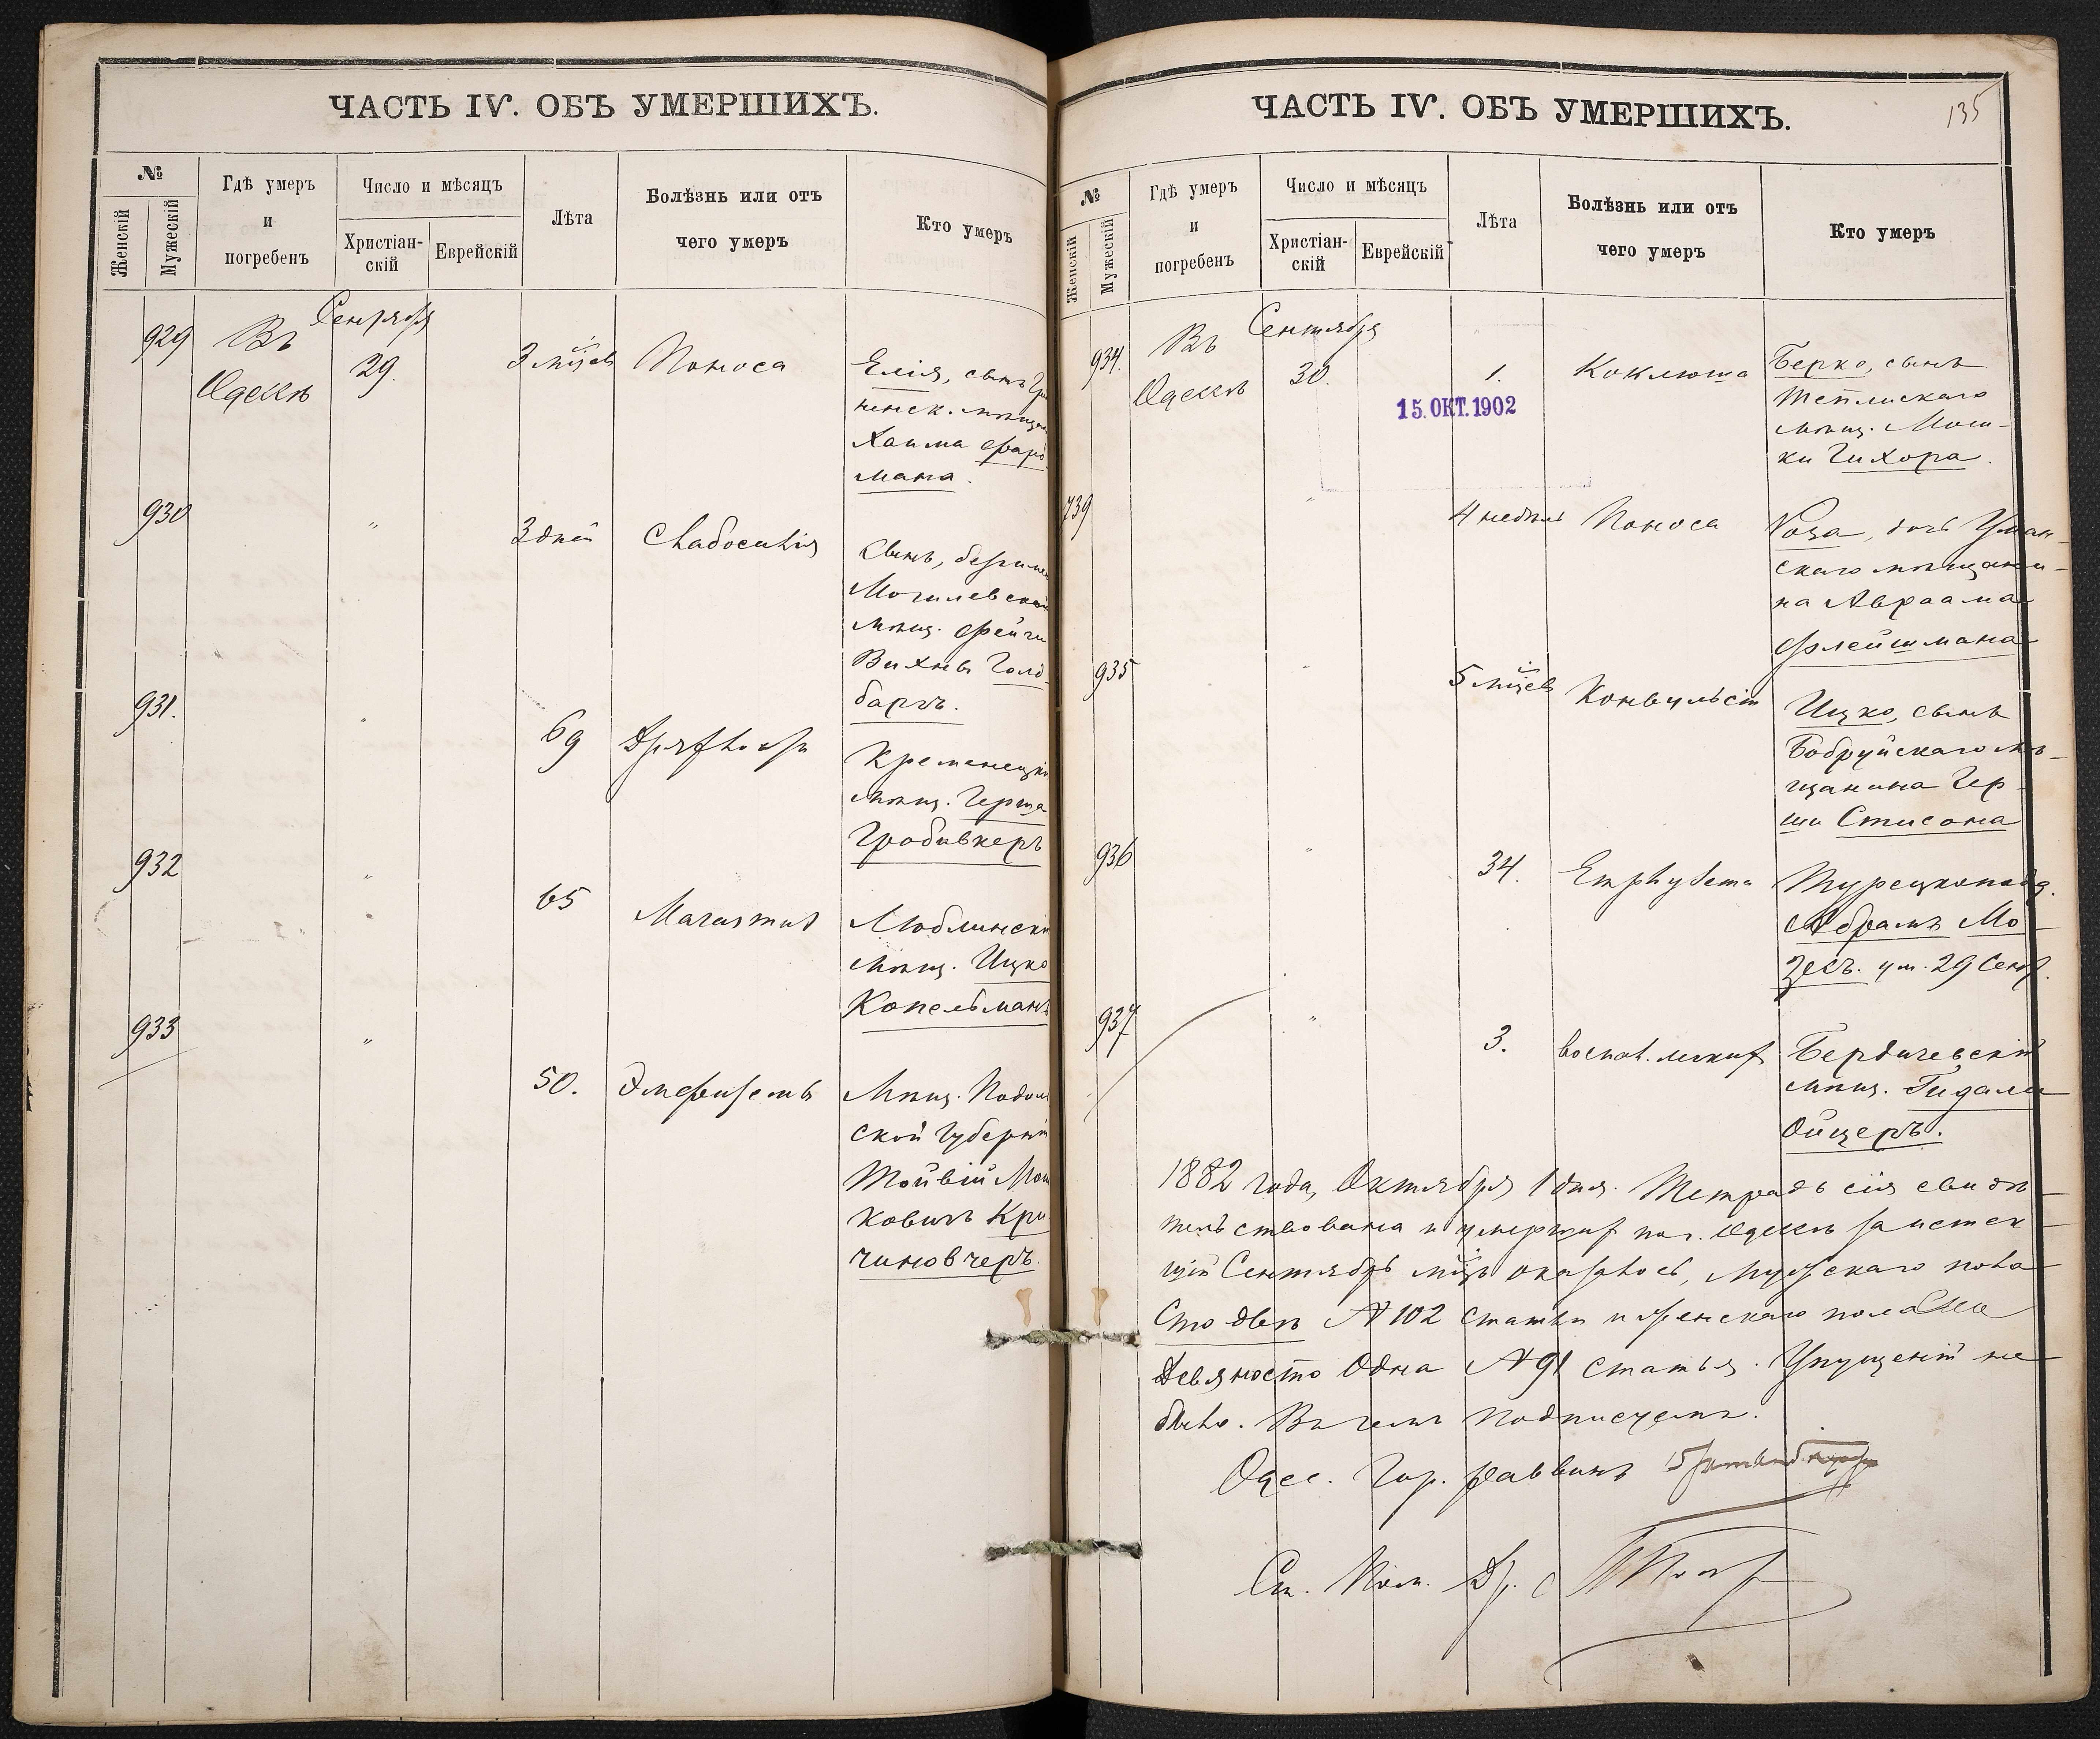 ЧАСТЬ IV. ОБЪ УМЕРШИХЪ.
№
Женскій
Мужескій
Гдѣ умеръ
и
погребенъ
Число и мѣсяцъ
Христіан-
скій
Еврейскій
Лѣта
Болѣзнь или отъ
чего умеръ
Кто умеръ
Сентября
929
Въ
Одессѣ
29.
3 мѣсяцев
Поноса
Елія, сынъ
менск. мѣщан
Хаима Фарб
мана.
930
"
3 дней
Слабосилія
Сынъ, безимен
Могилевской
мѣщ. Фейги
Вихны Голд
баргъ.
931.
"
69
Дряхлости
Кременецкій
мѣщ. Герша
Гробивкеръ
932
"
65
Marasmus
Люблинскій
мѣщ. Ицко
Копельманъ
933
"
50.
Эмфиземы
Мѣщ. Подоль
ской Губерніи
Тойвій Мош
ковичъ Кри
чиновчеръ.
ЧАСТЬ IV. ОБЪ УМЕРШИХЪ.
135
№
Женскій
Мужескій
Гдѣ умеръ
и
погребенъ
Число и мѣсяцъ
Христіан-
скій
Еврейскій
Лѣта
Болѣзнь или отъ
чего умеръ
Кто умеръ
Сентября
934.
Въ
Одессѣ
30.
1.
15. ОКТ. 1902
Коклюша
Берко, сынъ
Тепликскаго
мѣщ. Мош-
ки Чихора.
739
"
4 недѣль
Поноса
Роза, дочь Уман-
скаго мѣщани-
на Авраама
Флейшмана
935
"
5 мѣсяцев
Конвульсіи
Ицко, сынъ
Бобруйскаго мѣ-
щанина Гер-
ша Стисона
936
"
34.
Emphysema
Турецкопод.
Абрамъ Мо-
зесъ. ум. 29 Сент.
937
"
3.
воспал. легких
Бердичевскій
мѣщ. Гидали
Ойцеръ.
1882 года, Октября 1 дня. Тетрадь сія свидѣ-
тельствована и умерших по г. Одессѣ за истек-
шій Сентябрь мѣсяцъ оказалось, мужскаго пола
Сто двѣ № 102 статьи и женскаго пола
Девяносто Одна № 91 статья. Упущеній не
было. Въ чемъ подписуемъ.
Одес. Гор. Раввинъ
Ст. Пом. Др. С